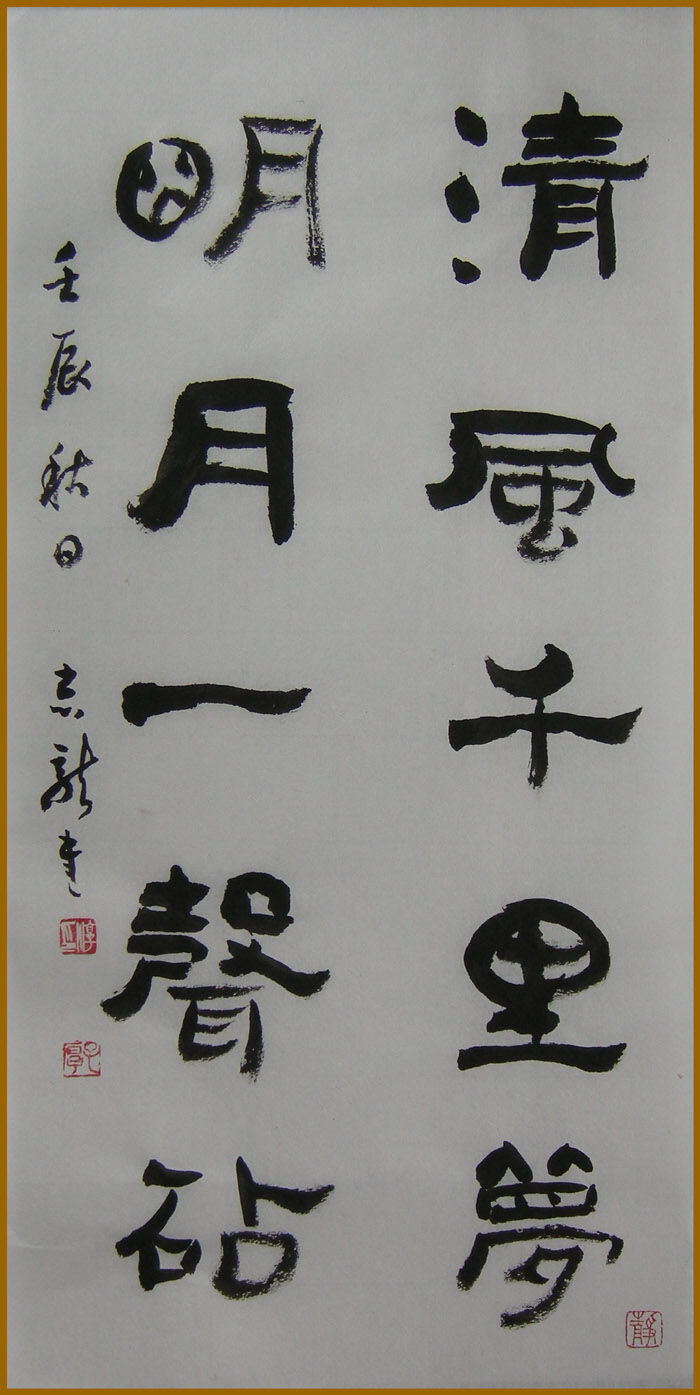 清風千里夢
明月一聲砧
壬辰秋日 志龍書
靜